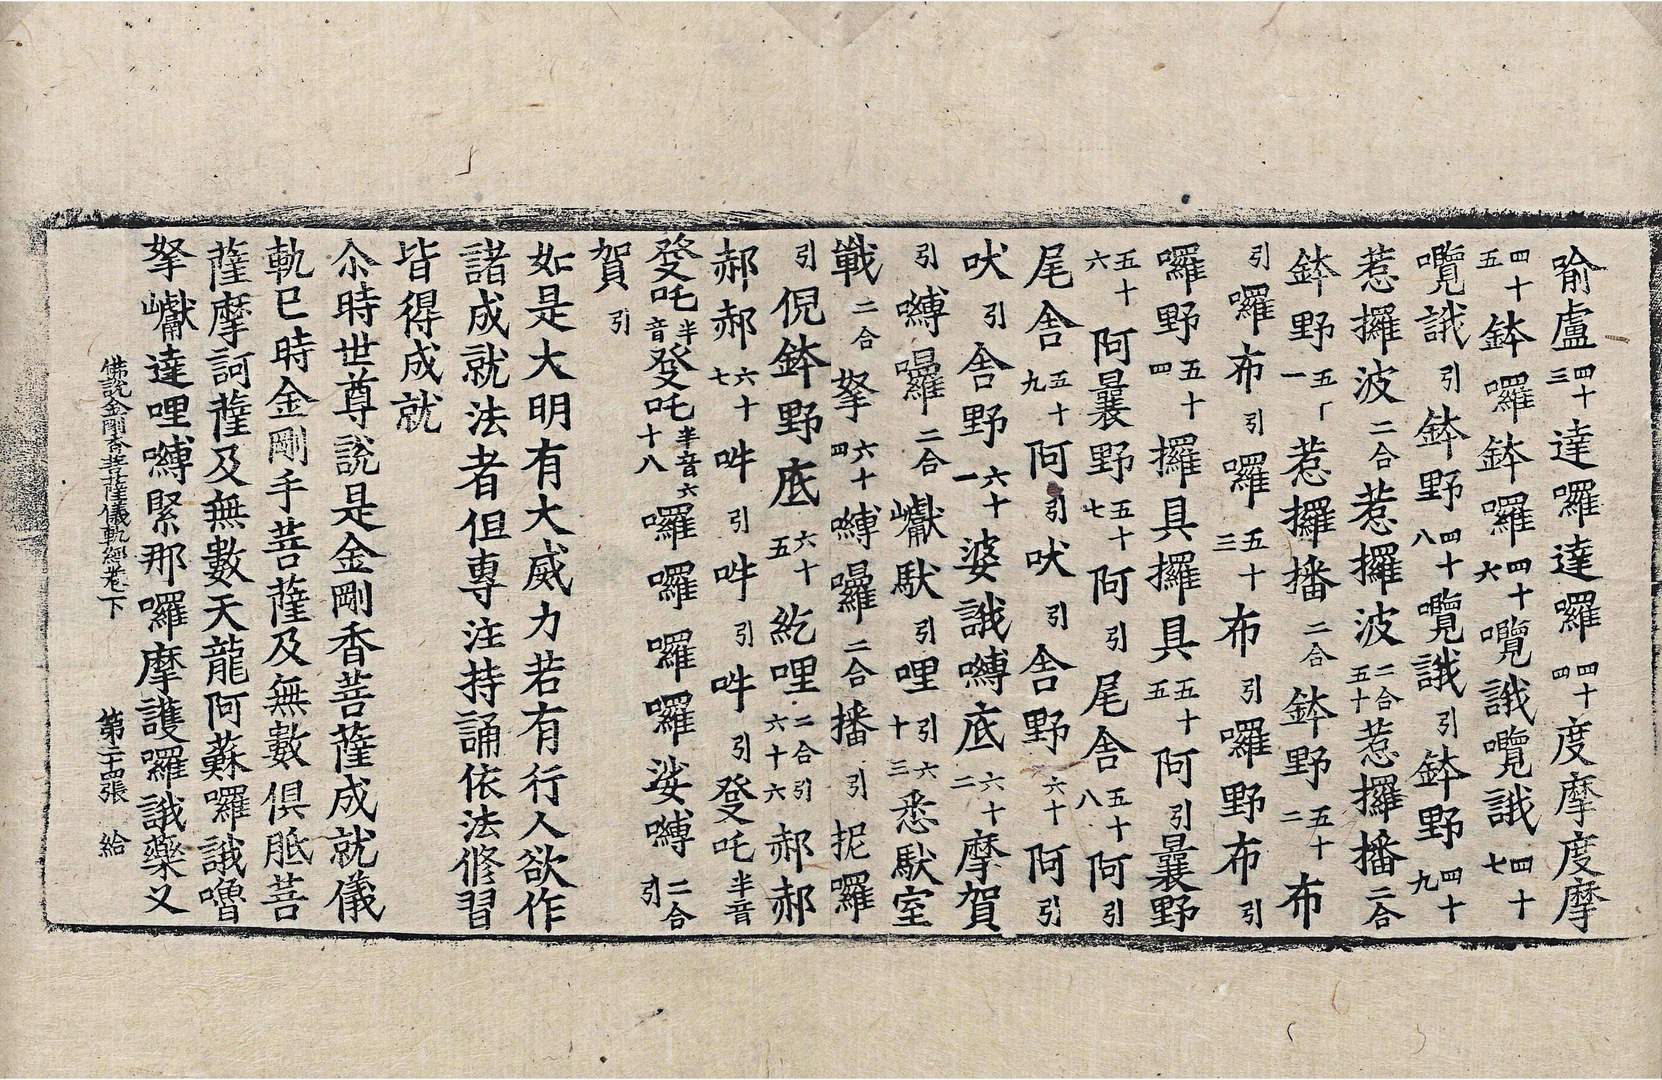 喻盧四十三達囉達囉四十四度摩度摩
四十五鉢囉鉢囉四十六囕誐囕誐四十七
囕誐引鉢野四十八囕誐引鉢野四十九
惹攞波二合惹攞波二合五十惹攞播二合
鉢野五十一惹攞播二合鉢野五十二布
引囉布引囉五十三布引囉野布引
囉野五十四攞具攞具五十五阿引曩野
五十六阿曩野五十七阿引尾舍五十八阿引
尾舍五十九阿引吠引舍野六十阿引
吠引舍野六十一婆誐嚩底六十二摩賀
引嚩囉二合巘馱引哩引六十三悉馱室
戰二合拏六十四嚩囉二合播引抳囉
引倪鉢野底六十五紇哩二合引六十六郝郝
郝郝六十七吽引吽引吽引癹吒半音
癹吒半音癹吒半音六十八囉囉囉囉娑嚩二合引
賀引
如是大明有大威力若有行人欲作
諸成就法者但專注持誦依法修習
皆得成就
尒時世尊說是金剛香菩薩成就儀
軌已時金剛手菩薩及無數俱胝菩
薩摩訶薩及無數天龍阿蘇囉誐嚕
拏巘達哩嚩緊那囉摩護囉誐藥叉
佛說金剛香菩薩儀軌經卷下　第二十四張　給